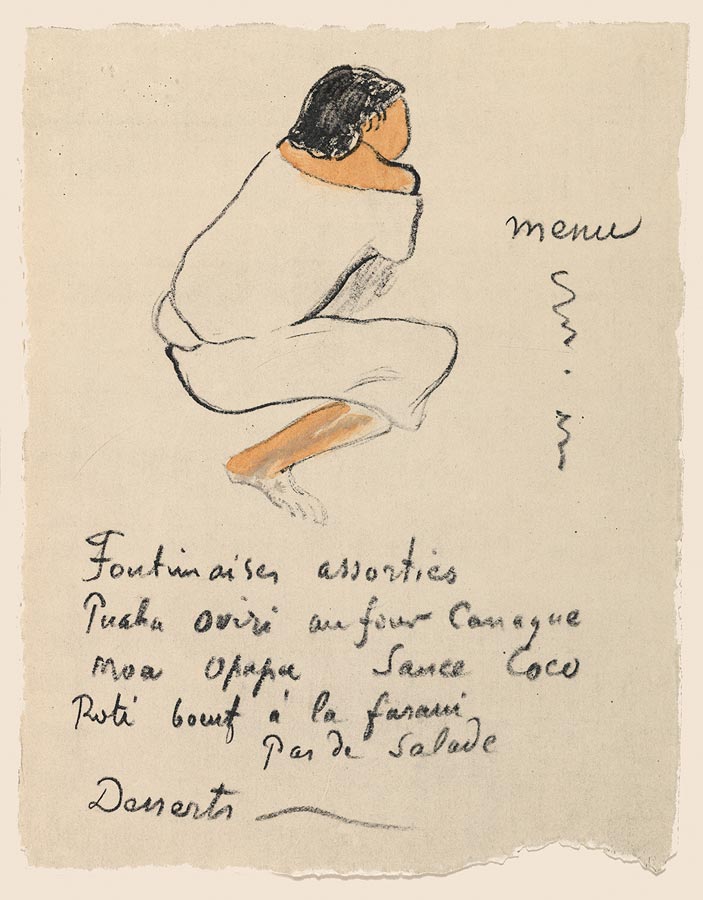 menu
Foutimaises assorties
Puaka oviri au four Canaque
moa opapa Sauce Coco
Roti boeuf à la farani
Pas de Salade
Desserts